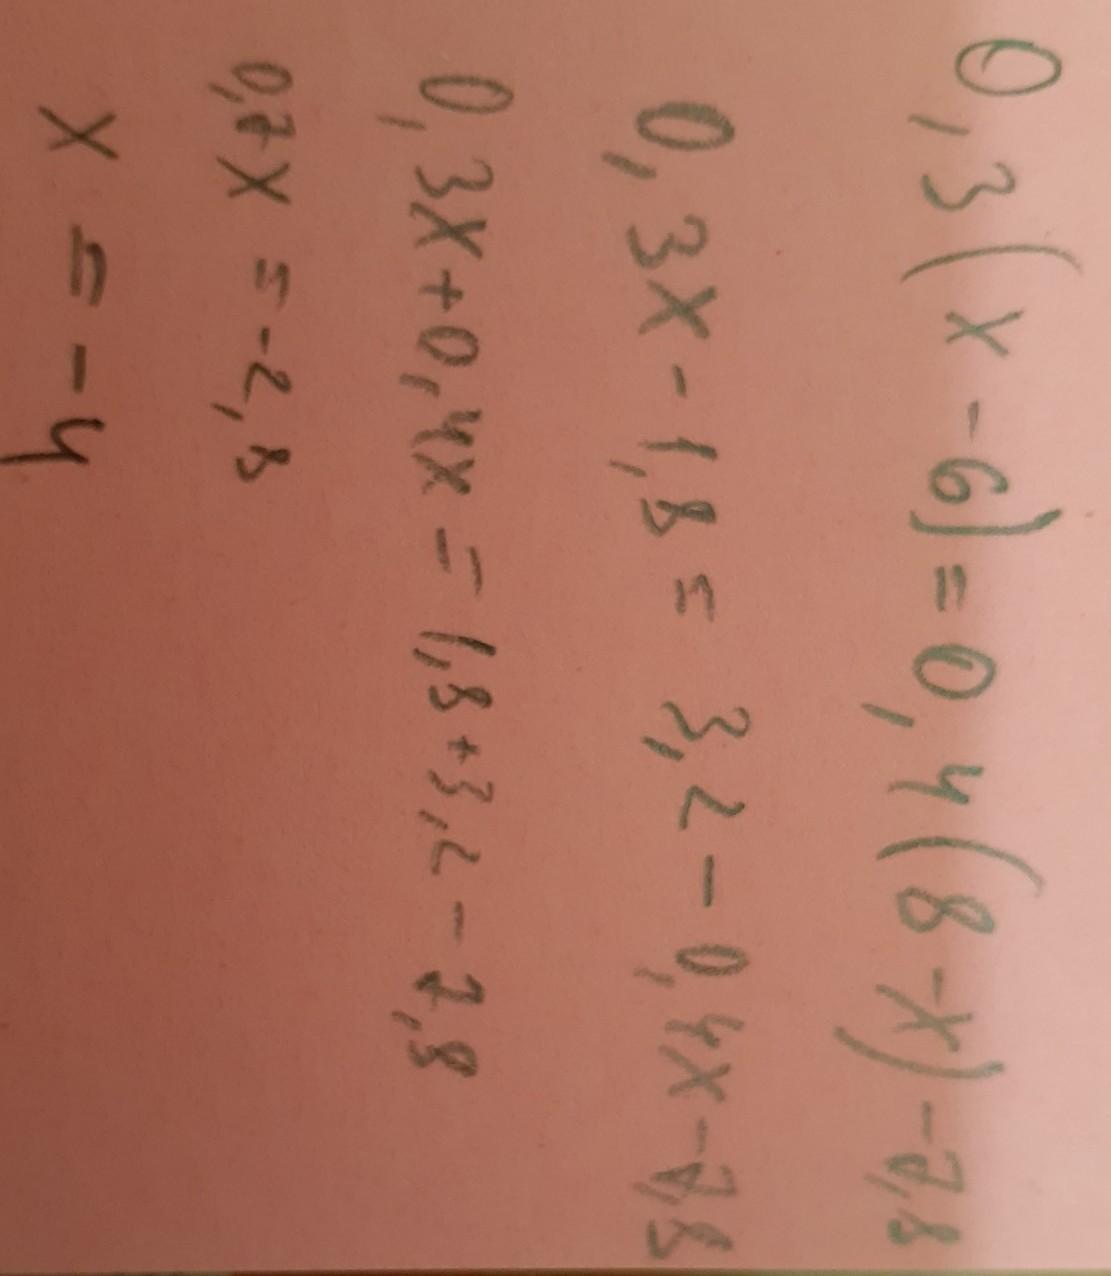 0,3(x-6)=0,4(8-x)-7,8
0,3x-1,8=3,2-0,4x-7,8
0,3x+0,4x=1,8+3,2-7,8
0,7x=-2,8
x=-4